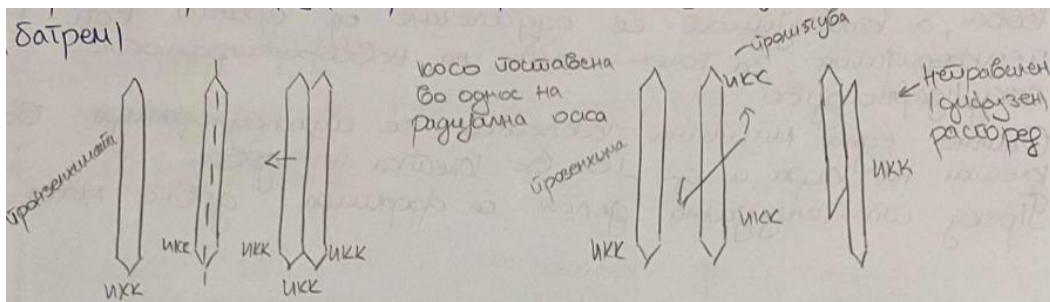 батрем)
прозенхимат
ИКК
ИКК
ИКК
ИКК
ИКК
косо поставена
во однос на
радијална оска
прозенхима
ИКК
ИКК
ИКК
ИКК
Неправилен
(дифузен)
распоред